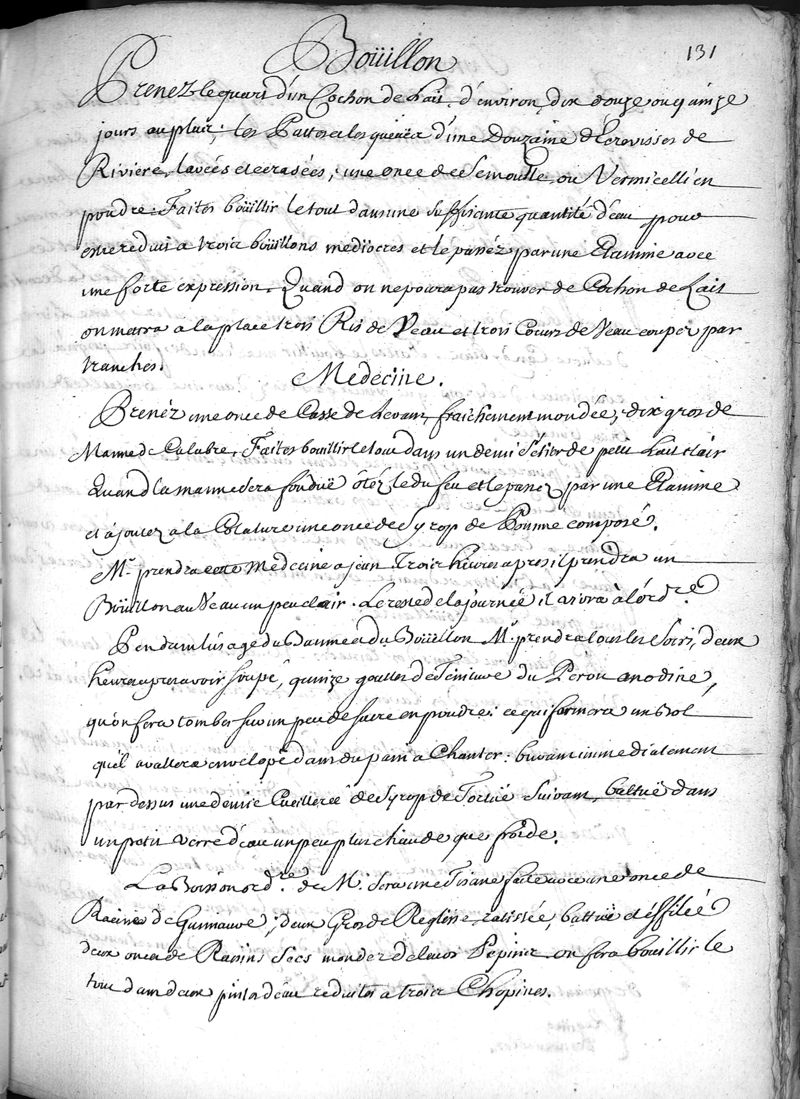 131
Boüillon
Prenez le quart d'un Cochon de Lait d'environ dix douze ou quinze
jours au plus; les Pattes et les queües d'une Douzaine d'Ecrevisses de
Riviere, lavées et ecrasées, une once de Semoulle ou Vermicelli en
poudre. Faites boüillir le tout dans une suffisante quantité d'eau pour
estre reduit a trois boüillons mediocres et le passéz par une Etamine avec
une forte expression. Quand on ne poura pas trouver de Cochon de Lait
on mettra a la place trois Ris de Veau et trois Coeurs de Veau coupez par
tranches.
Medecine.
Prenéz une once de Casse de Levant, fraichement mondée, dix gros de
Manne de Calabre, Faites bouillir le tout dans un demi Sétier de petit Lait clair
Quand la manne sera fonduë ôtéz le du feu et le passez par une Etamine
et ajoutez a la Colature une once de Syrop de Pomme composé.
Mr. prendra cette Medecine a jeun Trois heures apres il prendra un
Boüillon au Veau un peu clair. Le reste de la journée il vivra à l'ordre.
Pendant l'usage du Baume et du Boüillon Mr. prendra tous les Soirs, deux
heures apres avoir soupé, quinze gouttes de Teinture du Perou anodine,
qu'on fera tomber sur un peu de sucre en poudre: ce qui formera un bol
qu'il avallera envelopé dans du pain a Chanter: buvant immediatement
par dessus une demie Cueillerée de Syrop de Tortuë Suivant, battuë dans
un petit verre d'eau un peu plus chaude que froide.
La Boisson ordre. de Mr. Sera une Tisane faite avec une once de
Racine de Guimauve; deux Gros de Reglisse ratissée, battuë et éffilée
deux onces de Raisins Secs mondez de leurs Pepins on fera bouillir le
tout dans deux pintes d'eau reduites a trois Chopines.